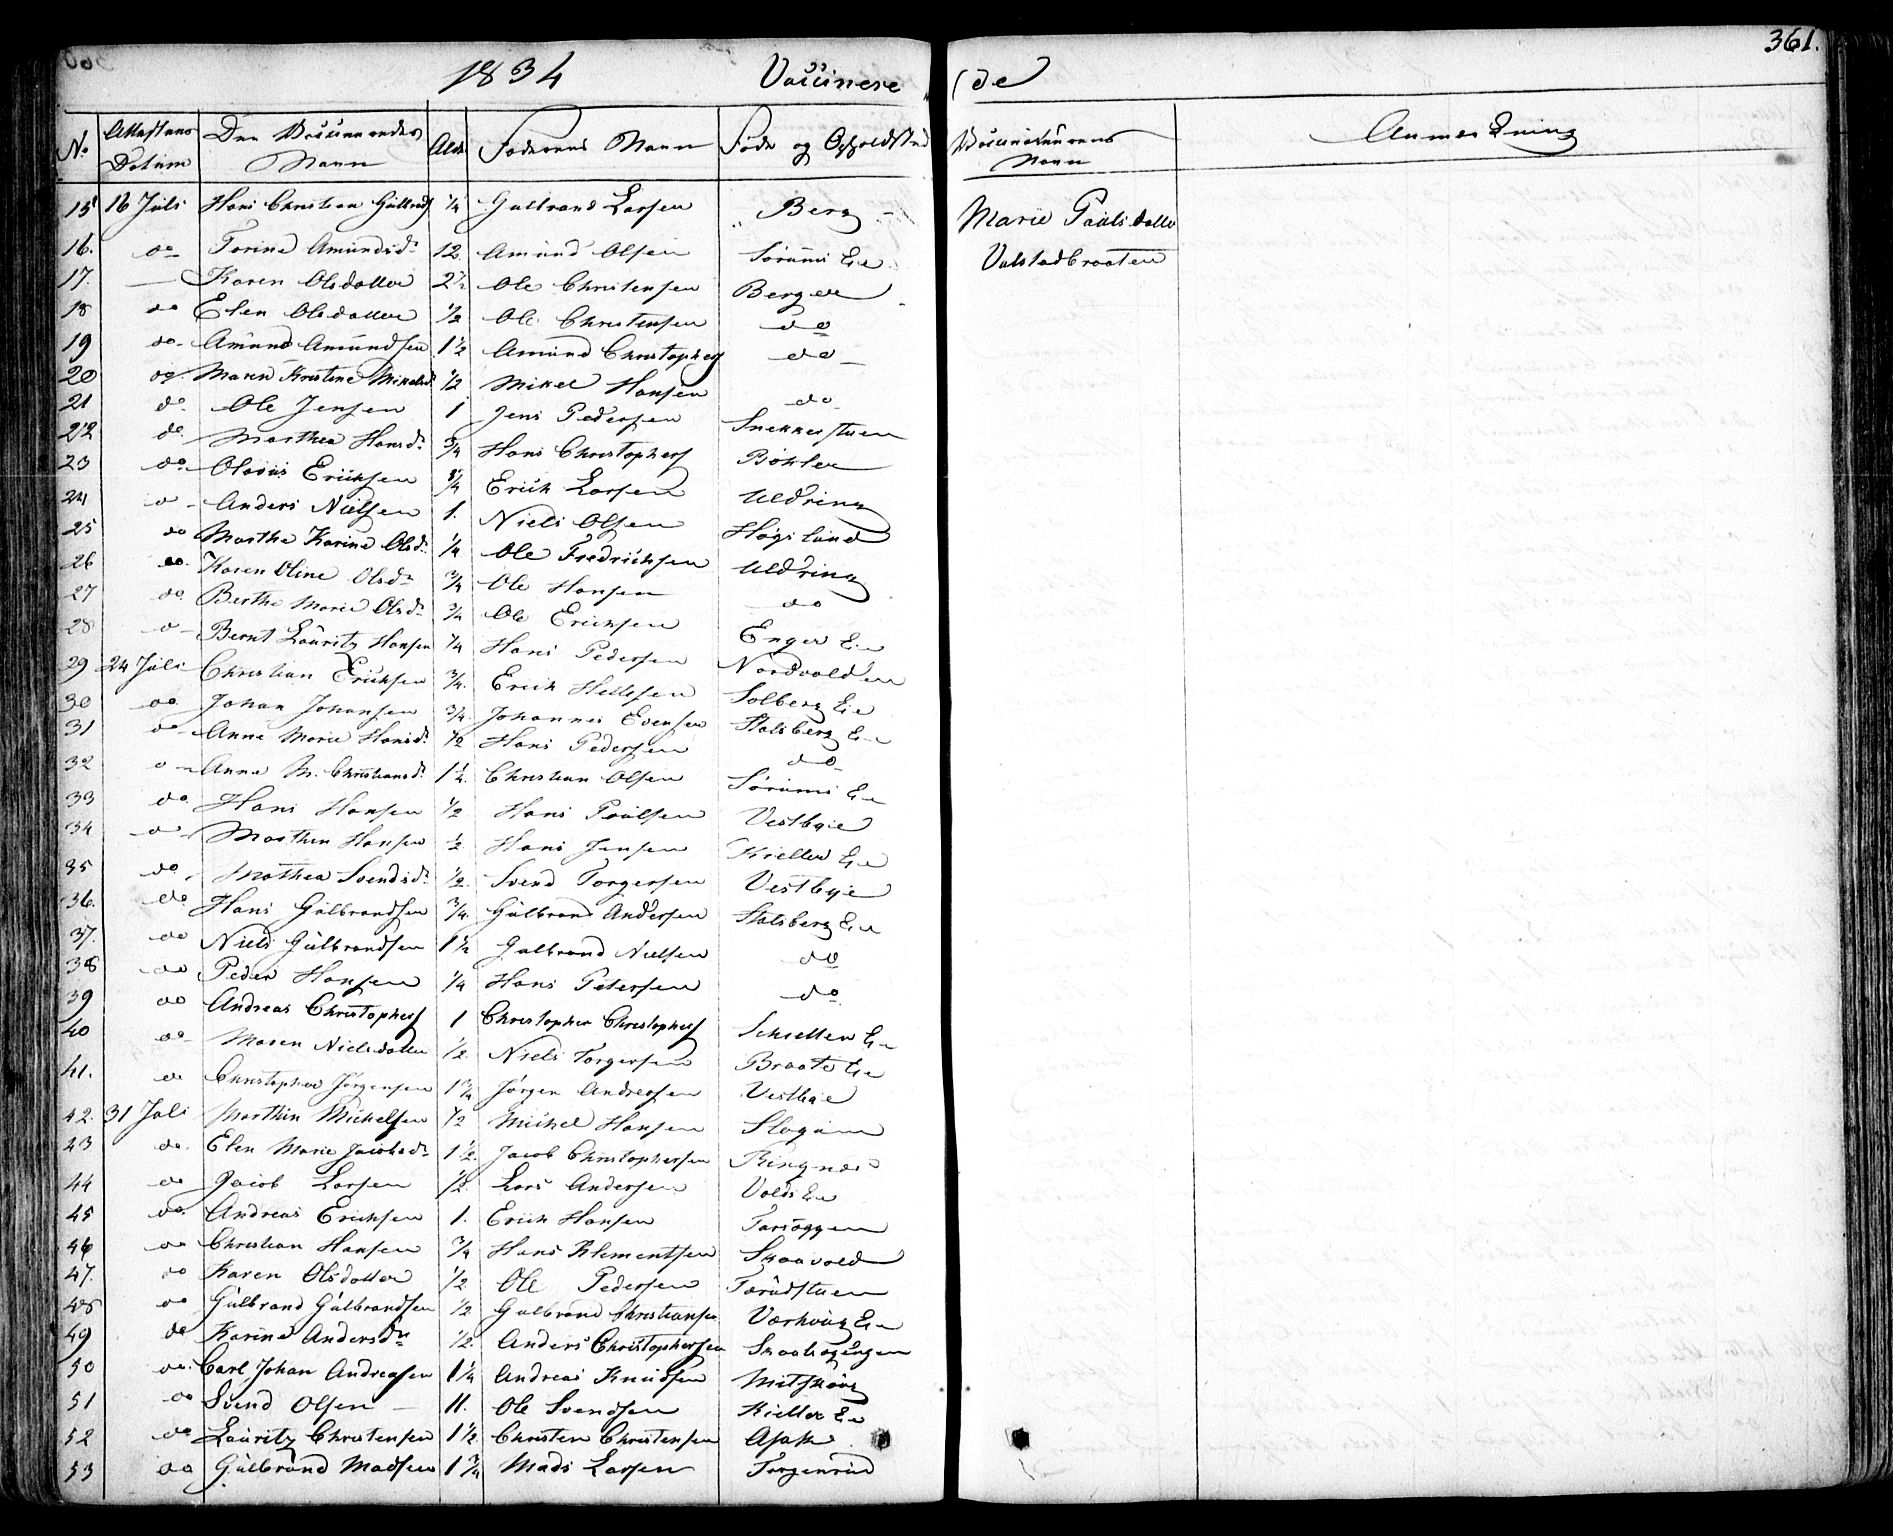 361.
1834 Vaccinerede
No Attestens Datum Den Vaccineredes Navn Alder Faderens Navn Føde og Opholdsted Vaccinateurens Navn Anmærkning
15 16 Juli Hans Christian Gulbrands 1/4 Gulbrand Larsen Berg Marie Paulsdatter
16. do Torine Amundsdr 12. Amund Olsen Sørums Eie Valstadbraaten
17. — Karen Olsdatter 2 1/2 Ole Christensen Berger
18 do Elen Olsdatter 1/2 Ole Christensen do
19 do Amund Amundsen 1 1/2 Amund Christophers do
20 do Maren Kristine Mikelsd 1/2 Mikel Hansen do
21 do Ole Jensen 1 Jens Pedersen Snekkerstuen
22 do Marthea Hansdr 3/4 Hans Christophers Böhler
23 do Olavus Ericksen Erick Larsen Uldring
24 do Anders Nielsen 1. Niels Olsen Høgslund
25 do Marthe Karine Olsdr 1/4 Ole Fredricksen Uldring
26 do Karen Oline Olsdr 3/4 Ole Hansen do
27 do Berthe Marie Olsdr 3/4 Ole Ericksen Enger Eie
28 do Bernt Lauritz Hansen 1/4 Hans Pedersen Nordvolden
29 24 Juli Christian Ericksen 3/4. Erick Hellesen Solberg Eie
30 do Johan Johansen 3/4. Johannes Evensen Stalsberg Eie
31 do Anne Marie Hansdr 1/2 Hans Pedersen do
32 do Anne M. Christiansdr 1 1/2. Christian Olsen Sørums Eie
33 do Hans Hansen 1/2 Hans Poulsen Vestbye
34 do Marthin Hansen 1/2 Hans Jensen Kieller Eie
35 do Mathea Svendsdr 1/2. Svend Torgersen Vestbye
36. do Hans Gulbrandsen 3/4. Gulbrand Andersen Stalsberg Eie
37. do Niels Gulbrandsen 1 1/2 Gulbrand Nielsen do
38 do Peder Hansen 1/4 Hans Petersen do
39 do Andreas Christophers 1 Christopher Christophers Schieller Eie
40 do Maren Nielsdatter 1/2 Niels Torgersen Braate Eie
41. do Christopher Jørgensen 1 3/4 Jørgen Andreasen Vestbye
42. 31 Juli Marthin Michelsen 1/2 Michel Hansen Slogum
43 do Elen Marie Jacobsdr 1 1/2. Jacob Christophersen Ringnæs
44 do Jacob Larsen 1/2. Lars Andersen Volds Eie
45 do Andreas Ericksen 1. Erick Hansen
46 do Christian Hansen 3/4 Hans Klementsen Skaavold
47. do Karen Olsdatter 1/2 Ole Pedersen Tærudstuen
48 do Gulbrand Gulbrandsen 1/2 Gulbrand Christiansen Værhaug Eie
49 do Karine Andersdr 1/2. Anders Christophersen
50 do Carl Johan Andreasen 1 1/4 Andreas Knudsen Mitskoug
51 do Svend Olsen 11. Ole Svendsen Kieller Eie
52 do Lauritz Christensen 1 1/2 Christen Christensen Asak
53 do Gulbrand Madsen 1 3/4 Mads Larsen Torgenrud